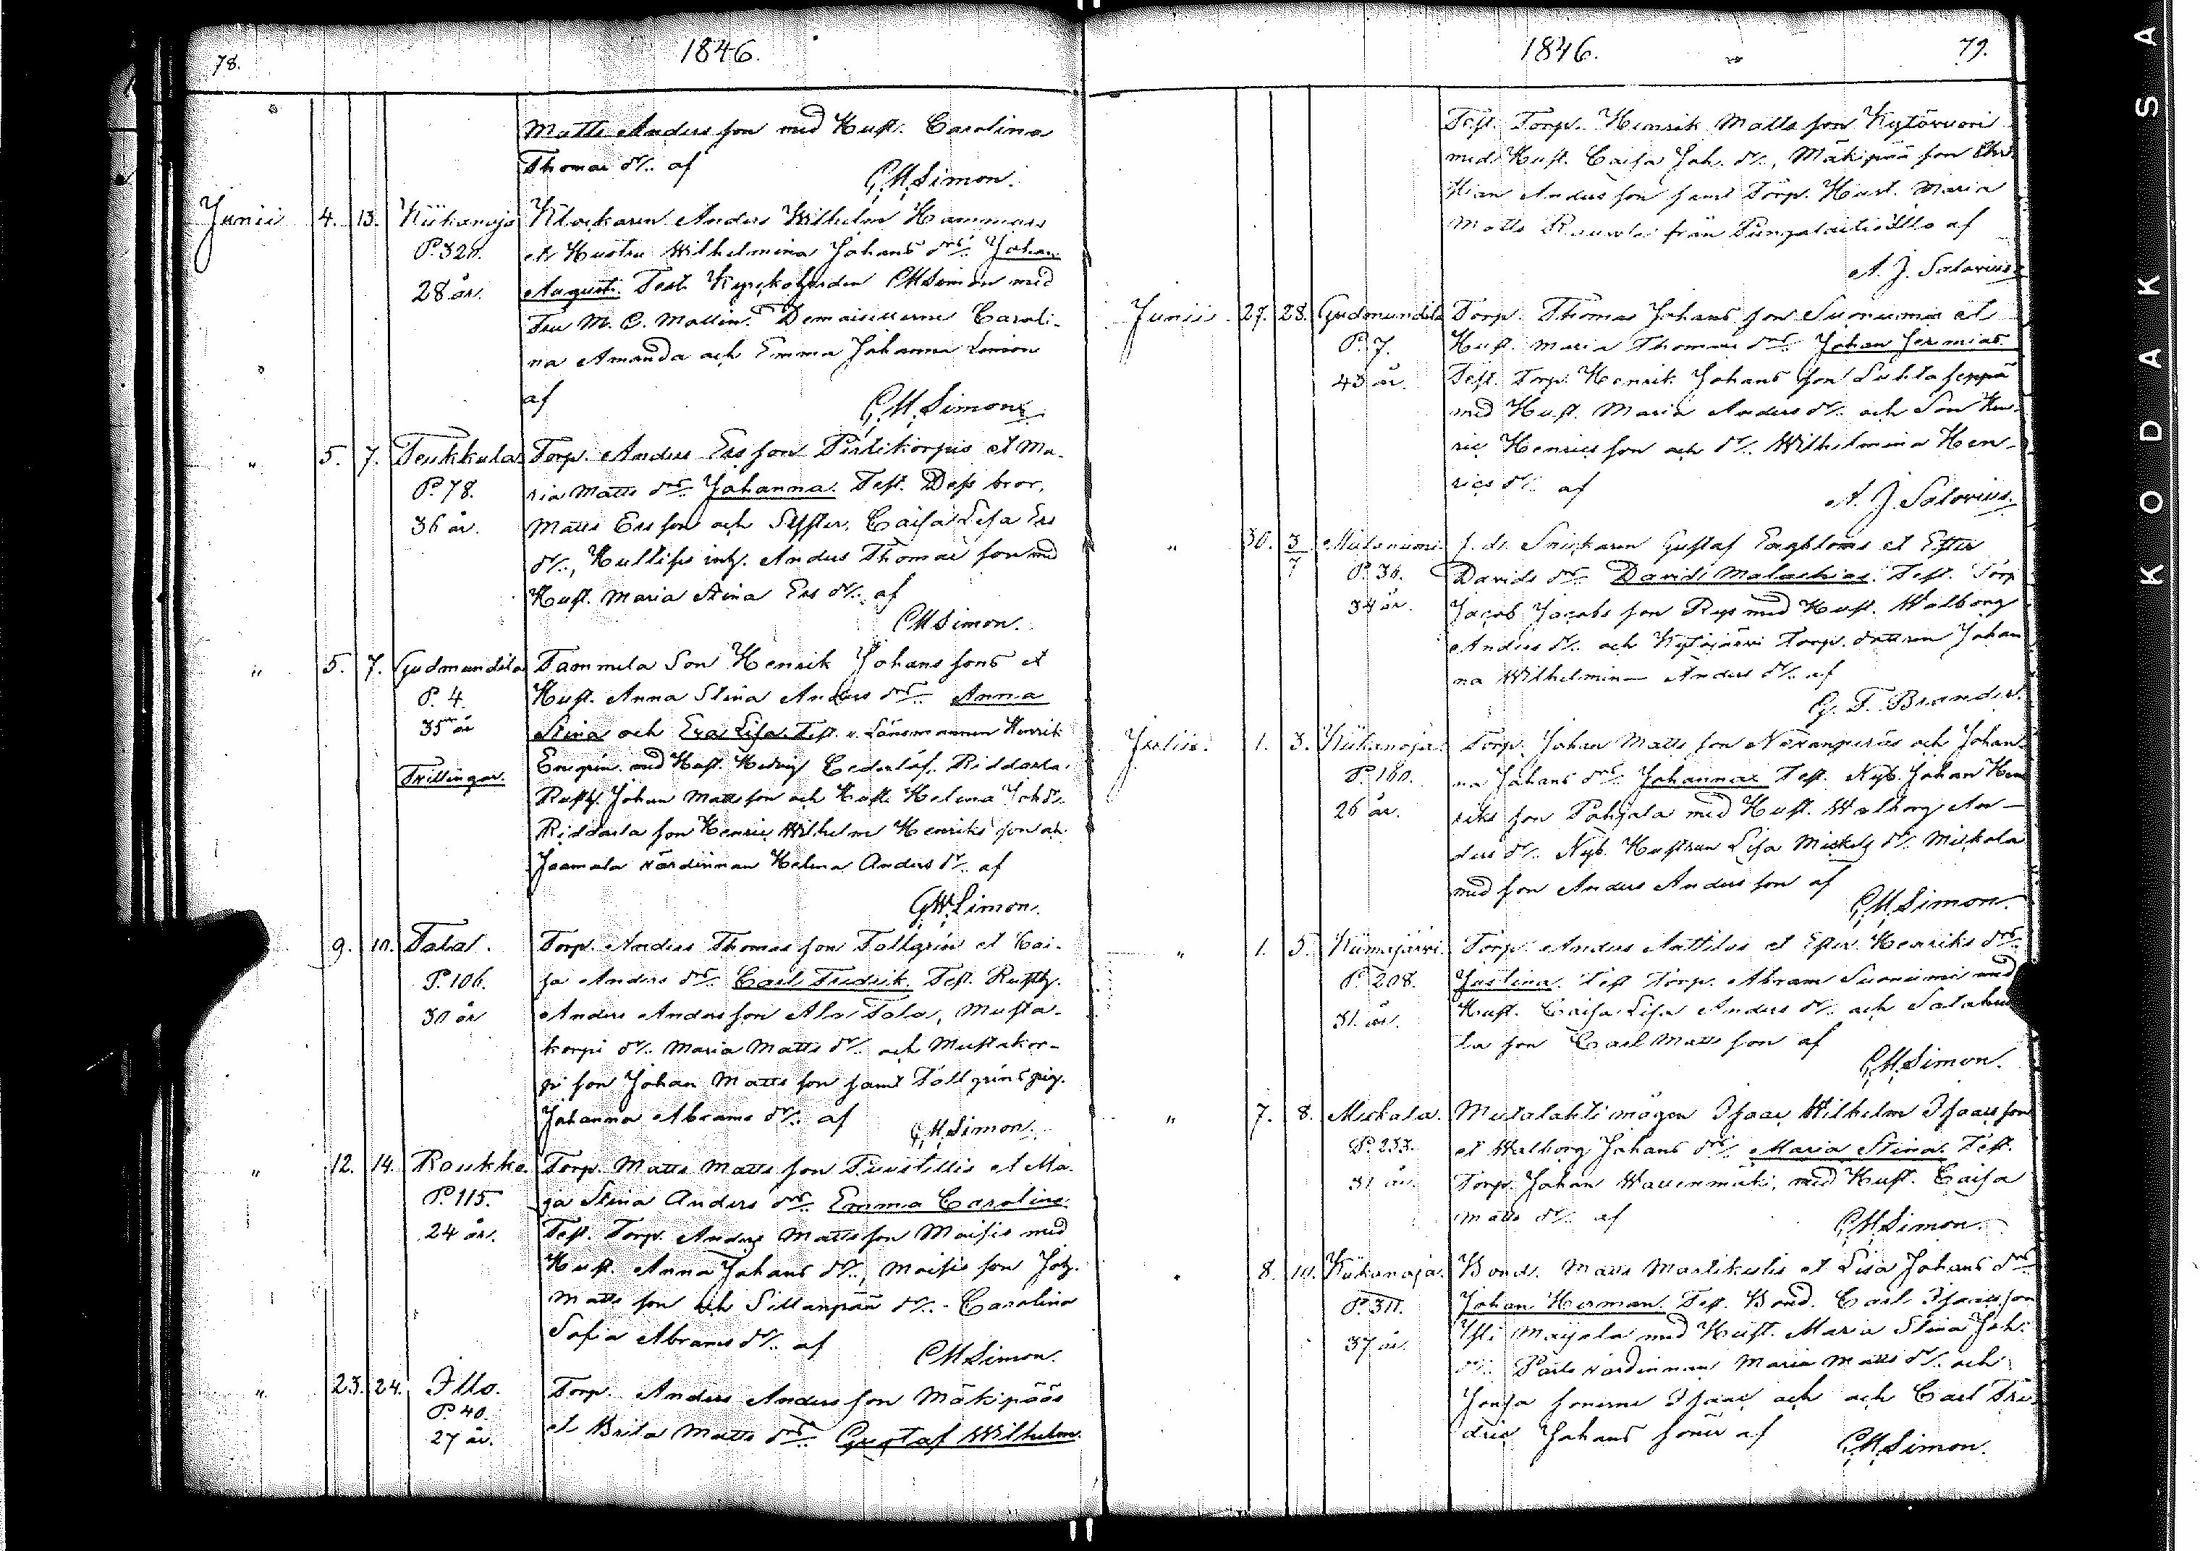 78. 1846.
Matts Anders son med Hust. Carolina
Thomae dr. af
G. M. Simon.
Junii 4. 13. Kiikanoja Klockaren Anders Wilhelm Hammars
P. 320. et Hustru Wilhelmina Johans drs Johan
28 år. August. Test. Kyrkoherden GMSimon med
Fru M. C. Mollin. Demoisellerne Caroli-
na Amanda och Emma Johanna Simon
af G. M. Simon.
" 5. 7. Teukkula Torp. Anders Ers son Pirttikorpis et Ma-
P. 78. ria Matts drs Johanna. Test. Dess bror,
36 år. Matts Ers son och Syster, Caisa Lisa Ers
dr., Anders Thomae son med
Hust. Maria Stina Ers dr. af
GMSimon.
" 5. 7. Gudmundila Tammela Son Henrik Johans sons et
P. 4. Hust. Anna Stina Anders drs Anna
35 år Stina och Eva Lisa. Test. v. Länsmannen Henrik
Trillingar. med Hust. Hedvig Riddarla
Rusth. Johan Matts son och Hust. Helena Joh. dr.
Riddarla son Henric Wilhelm Henriks son och
Jaamala värdinnan Helena Anders dr. af
GMSimon.
9. 10. Tala. Torp. Anders Thomae son Tallgrén et Cai-
P. 106. sa Anders drs Carl Fredrik. Test. Rusth.
30 år Anders Anders son Ala Tala, Musta-
korpi dr. Maria Matts dr. och Mustakor-
pi son Johan Matts son samt Tallgrens pig.
Johanna Abrams dr. af G. M. Simon.
" 12. 14. Roukko. Torp. Matts Matts son et Ma-
P. 115. ja Stina Anders drs Emma Carolina.
24 år. Test. Torp. Anders Matts son Maisis med
Hust. Anna Johans dr., Maisis son Joh.
Matts son och Sillanpää dr. Carolina
Sofia Abrams dr. af GMSimon.
" 23. 24. Illo. Torp. Anders Anders son Mäkipääs
P. 40. et Brita Matts drs Gustaf Wilhelm.
27 år.
1846. 79.
Test. Torp. Henrik Matts son Kytövuori
med Hust. Caisa Joh. dr., Mäkipää son Chri
stian Anders son samt Torp. Hust. Maria
Matts från Illo af
A. J. Salovius.
Junii. 27. 28. Gudmundila Torp. Thomas Johans son Suonumä et
P. 7. Hust. Maria Thomae drs Johan Jermias.
43 år. Test. Torp. Henrik Johans son Suhtaseppä
med Hust. Maria Anders dr. och Son Hen-
ric Henrics son och dr. Wilhelmina Hen-
rics dr. af A. J. Salovius.
" 30. 3/7 f. d. Snickaren Gustaf Engbloms et Ester
P. 36. Davids drs David Malachias. Test. Torp
34 år. Jacob Jacobs son Rys med Hust. Walborg
Anders dr. och Kytöjärvi Torp. dottren Johan
na Wilhelmina Anders dr. af
G. F. Brander.
Julii. 1. 3. Kiikanoja. Torp. Johan Matts son och Johan-
P. 160. na Johans drs Johannes. Test. Nyb. Johan Hen
26 år. riks son Pahjala med Hust. Walborg An-
ders dr. Nyb. Hustrun Lisa Mickels dr. Miekala
med son Anders Anders son af
GMSimon.
" 1. 5. Kiimajärvi. Torp. Anders Anttilas et Ester Henriks drs
P. 208. Justina. Test Torp. Abram Suoniemi med
31 år. Hust. Caisa Lisa Anders dr. och
la son Carl Matts son af
GMSimon.
" 7. 8. Miekala. Metalahti mågen Isaac Wilhelm Isaacs son
P. 233. et Walborg Johans drs Maria Stina. Test.
31 år. Torp. Johan Wauenmäki, med Hust. Caisa
Matts dr. af GMSimon.
" 8. 10. Kiikanoja. Bond. Matts Martikulis et Lisa Johans drs
P. 311. Johan Herman. Test. Bond. Carl Isaacs son
37 år. Yli Maijala med Hust. Maria Stina Joh.
dr. värdinnan Maria Matts dr. och
sönerne Isaac och och Carl Fre-
dric Johans söner af GMSimon.
KODAK SA